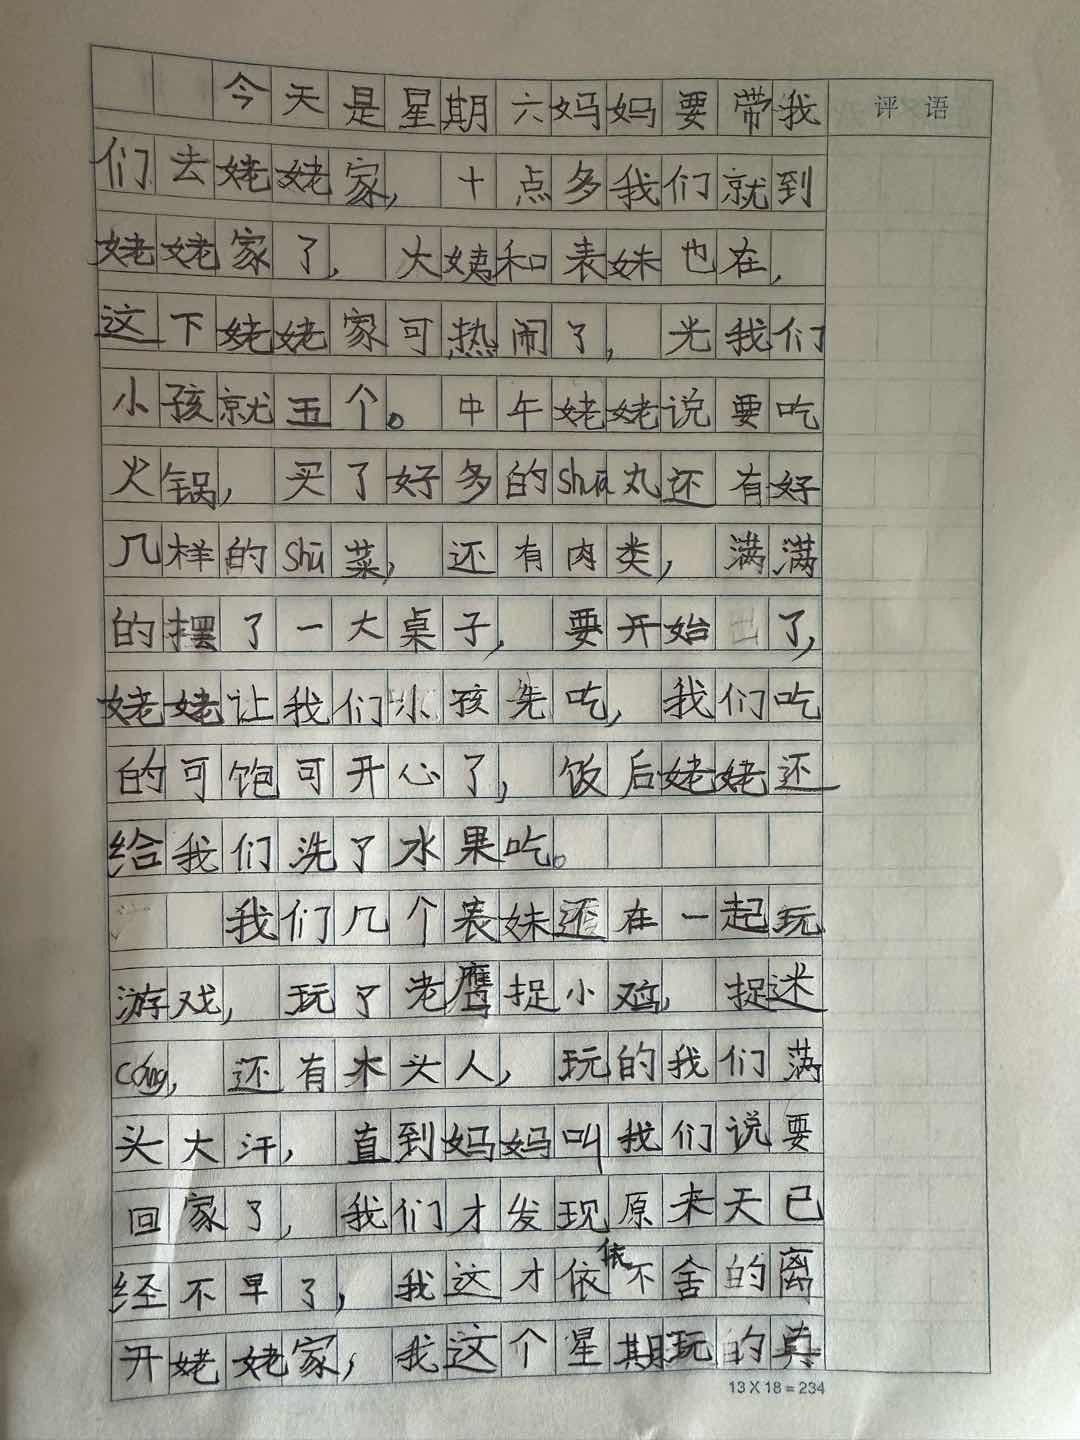 今天是星期六妈妈要带我
评语
们去姥姥家，十点多我们就到
姥姥家了，大姨和表妹也在，
这下姥姥家可热闹了，光我们
小孩就五个。中午姥姥说要吃
火锅，买了好多的shua丸还有好
几样的shū菜，还有肉类，满满
的摆了一大桌子，要开始了，
姥姥让我们小孩先吃，我们吃
的可饱可开心了，饭后姥姥还
给我们洗了水果吃。
我们几个表妹还在一起玩
游戏，玩了老鹰捉小鸡，捉迷
cáng，还有木头人，玩的我们满
头大汗，直到妈妈叫我们说要
回家了，我们才发现原来天已
经不早了，我这才依依不舍的离
开姥姥家，我这个星期玩的真
13 X 18 = 234